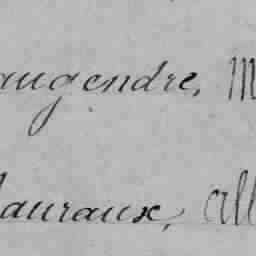 augendre, M
auraux, All